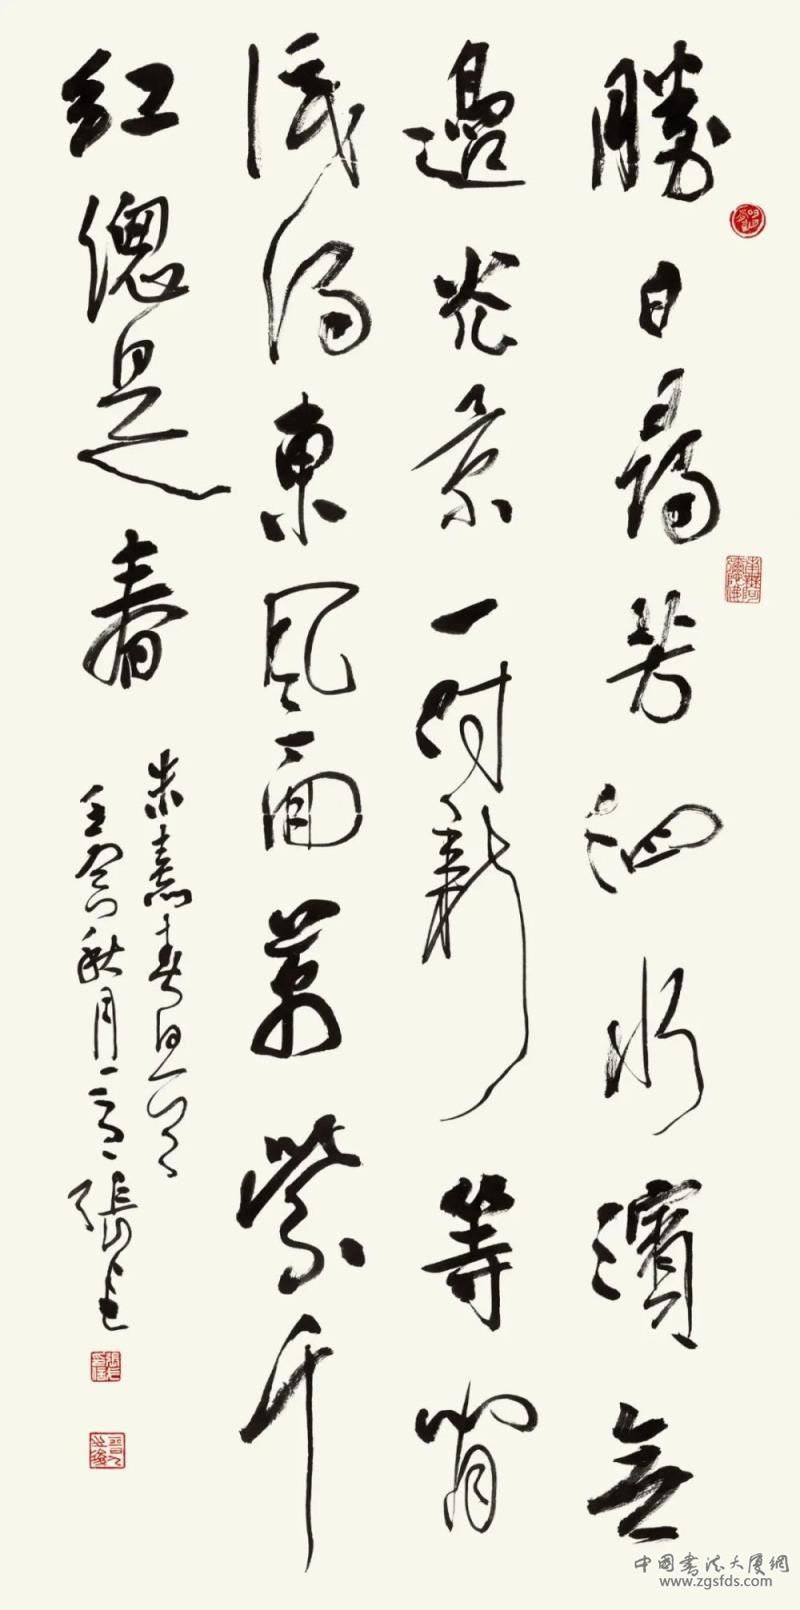 勝日尋芳泗水濱無
邊光景一時新等閒
識得東風面萬紫千
紅總是春
朱熹春日一首
壬寅秋月張
中國書法大廈網
www.zgsfds.com